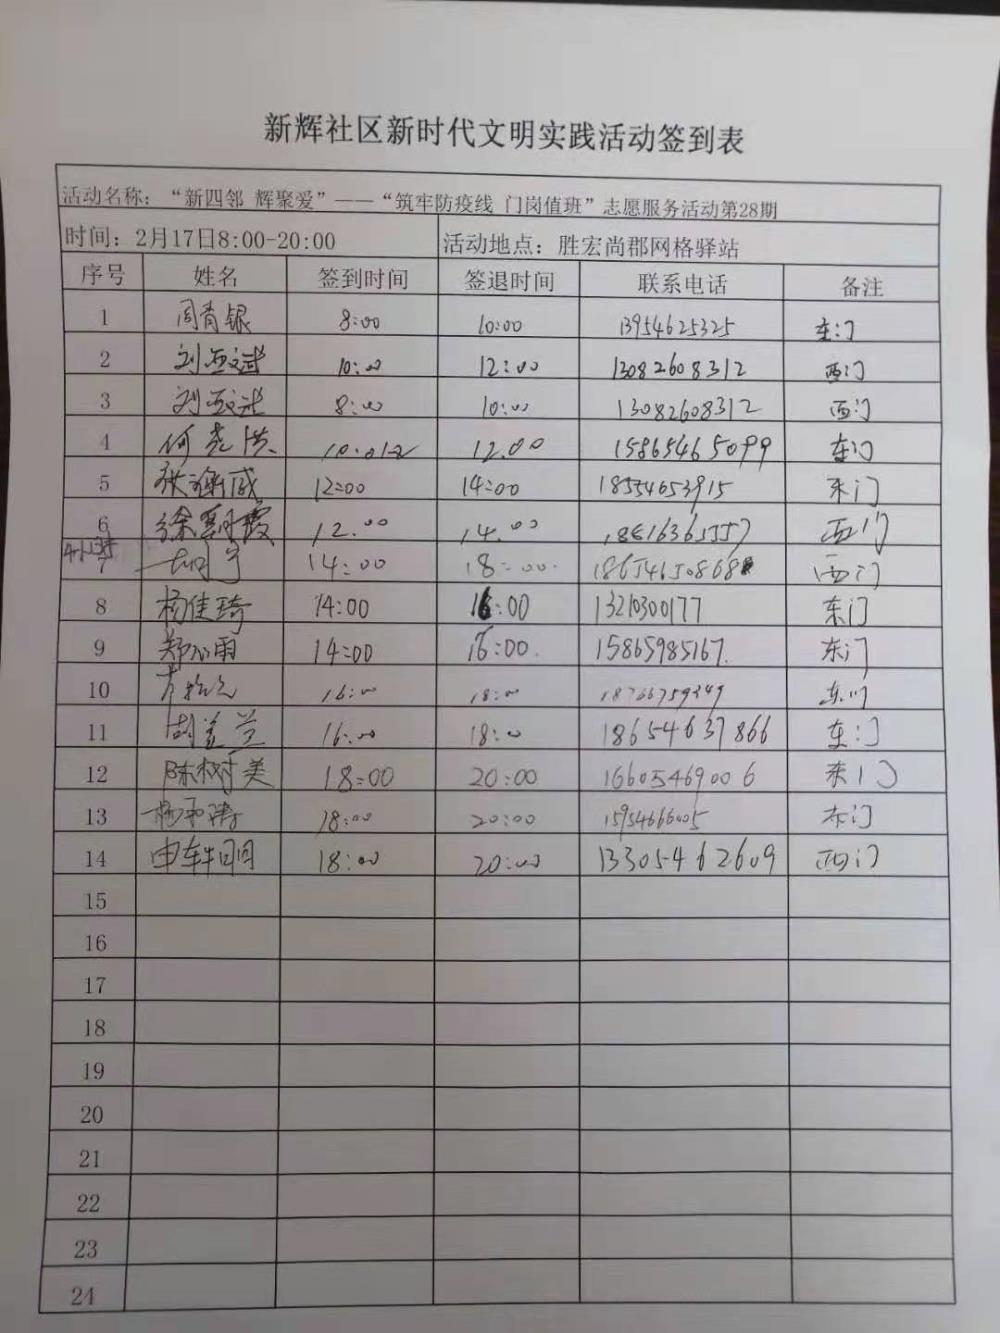 新辉社区新时代文明实践活动签到表
活动名称：“新四邻 辉聚爱”——“筑牢防疫线 门岗值班”志愿服务活动第28期
时间：2月17日8:00-20:00 活动地点：胜宏尚郡网格驿站
序号 姓名 签到时间 签退时间 联系电话 备注
1 周青银 8:00 10:00 13954625325 东门
2 刘亚斌 10:00 12:00 13082608312 西门
3 刘亚斌 8:00 10:00 13082608312 西门
4 何尧洪 12.00 15865465099 东门
5 张 威 12:00 14:00 18554653915 东门
6 徐 霞 12.00 14.00 西门
7 14:00 18:00 西门
8 杨佳琦 14:00 16:00 13210300177 东门
9 郑心雨 14:00 16:00. 15865985167. 东门
10 16:00 18:00 东门
11 胡孟兰 16:00 18:00 18654637866 东门
12 陈树美 18:00 20:00 16605469006 东门
13 18:00 20:00 15954666005 东门
14 申轩明 18:00 20:00 13305462609 西门
15
16
17
18
19
20
21
22
23
24